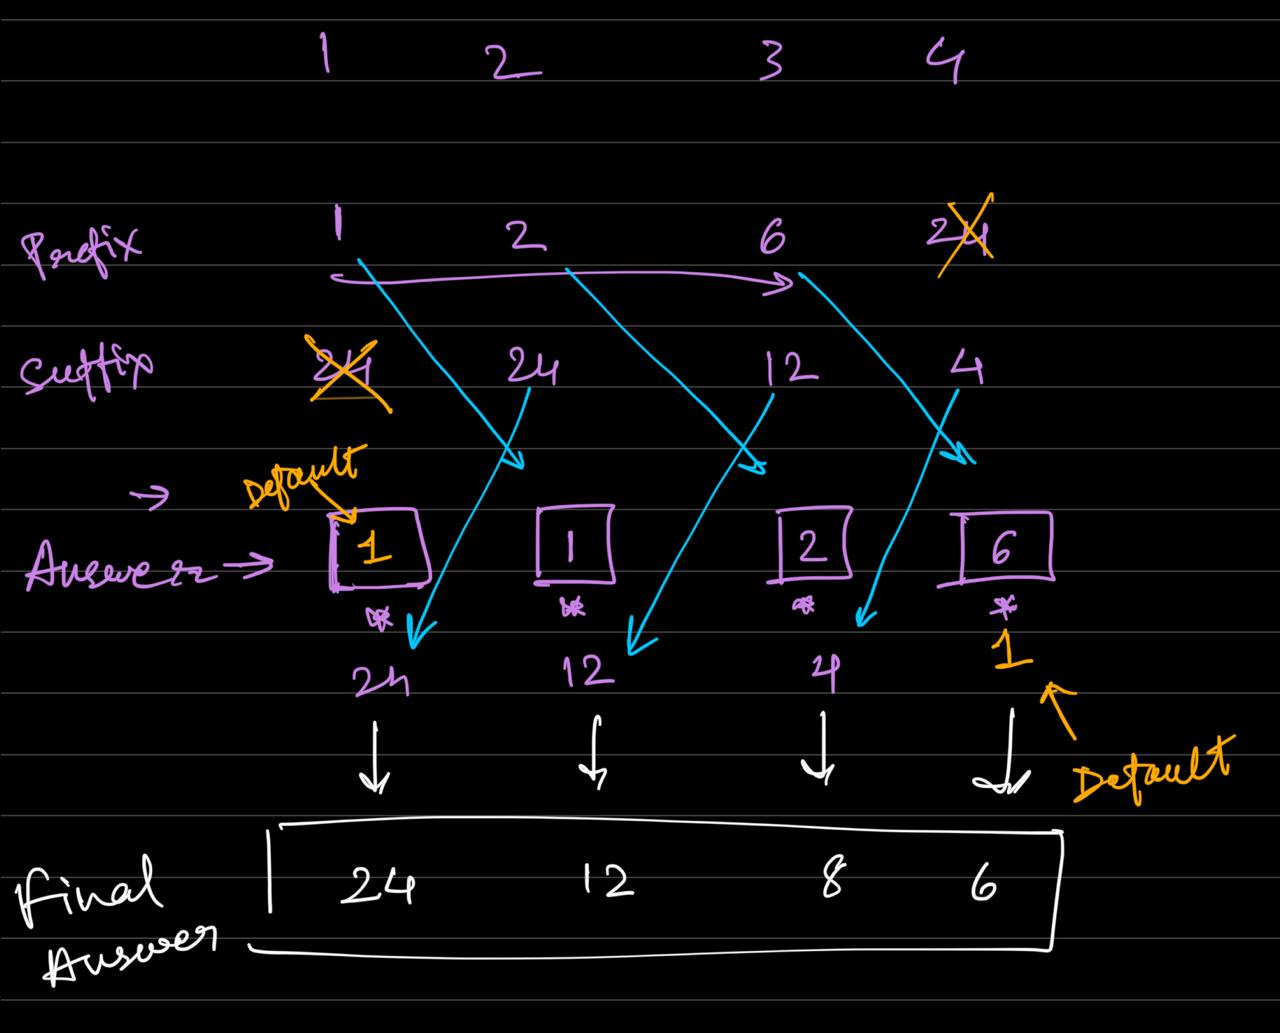 1 2 3 4
Prefix 1 2 6 24
Suffix 24 24 12 4
Default
→
Answer → 1 1 2 6
* * * *
24 12 4 1
Default
Final 24 12 8 6
Answer